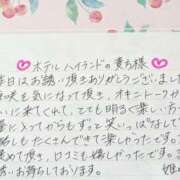 ホテルハイランドの貴方様
昨日はお誘い頂きありがとうございました
を気に入って頂き、オキニトークか
いに来てくれて、とても明るく楽しい方
に入ってからもずっと笑いっぱなしで
もたくさんできて楽しかったです。
めて頂き、口コミも嬉しかったです
お待ちしております。